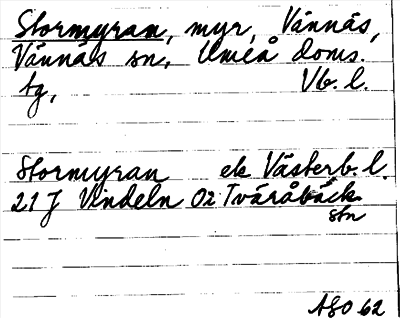 Stormyran, myr, Vännäs,
Vännäs sn, Umeå doms.
tg, Vb. l.
Stormyran ek Västerb. l.
21 J Vindeln 02 Tväråbäck
stn
ASO 62